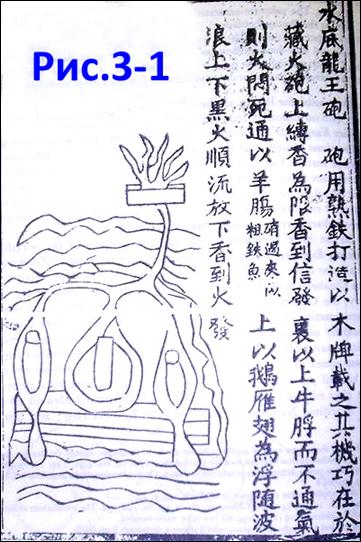 Рис.3-1
水底龍王砲 砲用熟鉄打造以木牌載之其機巧在於
藏火砲上縛香為限香到信發裹以上牛脬而不通氣
則火悶死通以羊腸硝過夾以粗鉄魚上以鵝雁翅為浮隨波
浪上下黑火順流放下香到火發